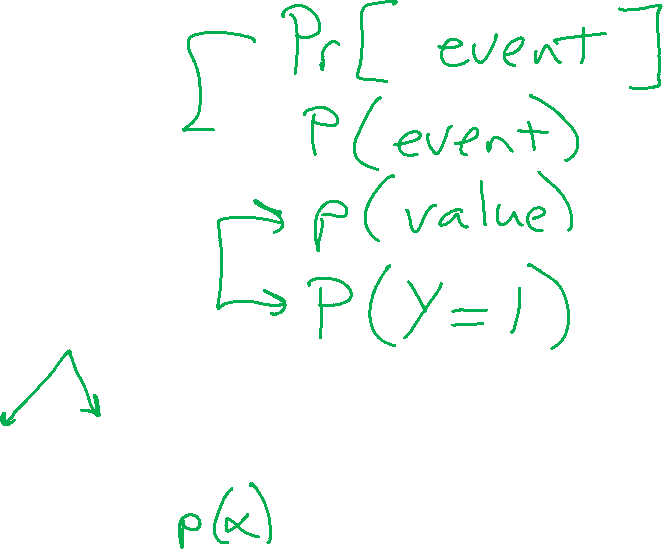 Pr[event]
P(event)
p(value)
P(Y=1)
p(α)